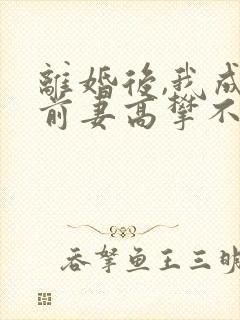 離婚後,我成
前妻高攀不
吞拏魚王三明